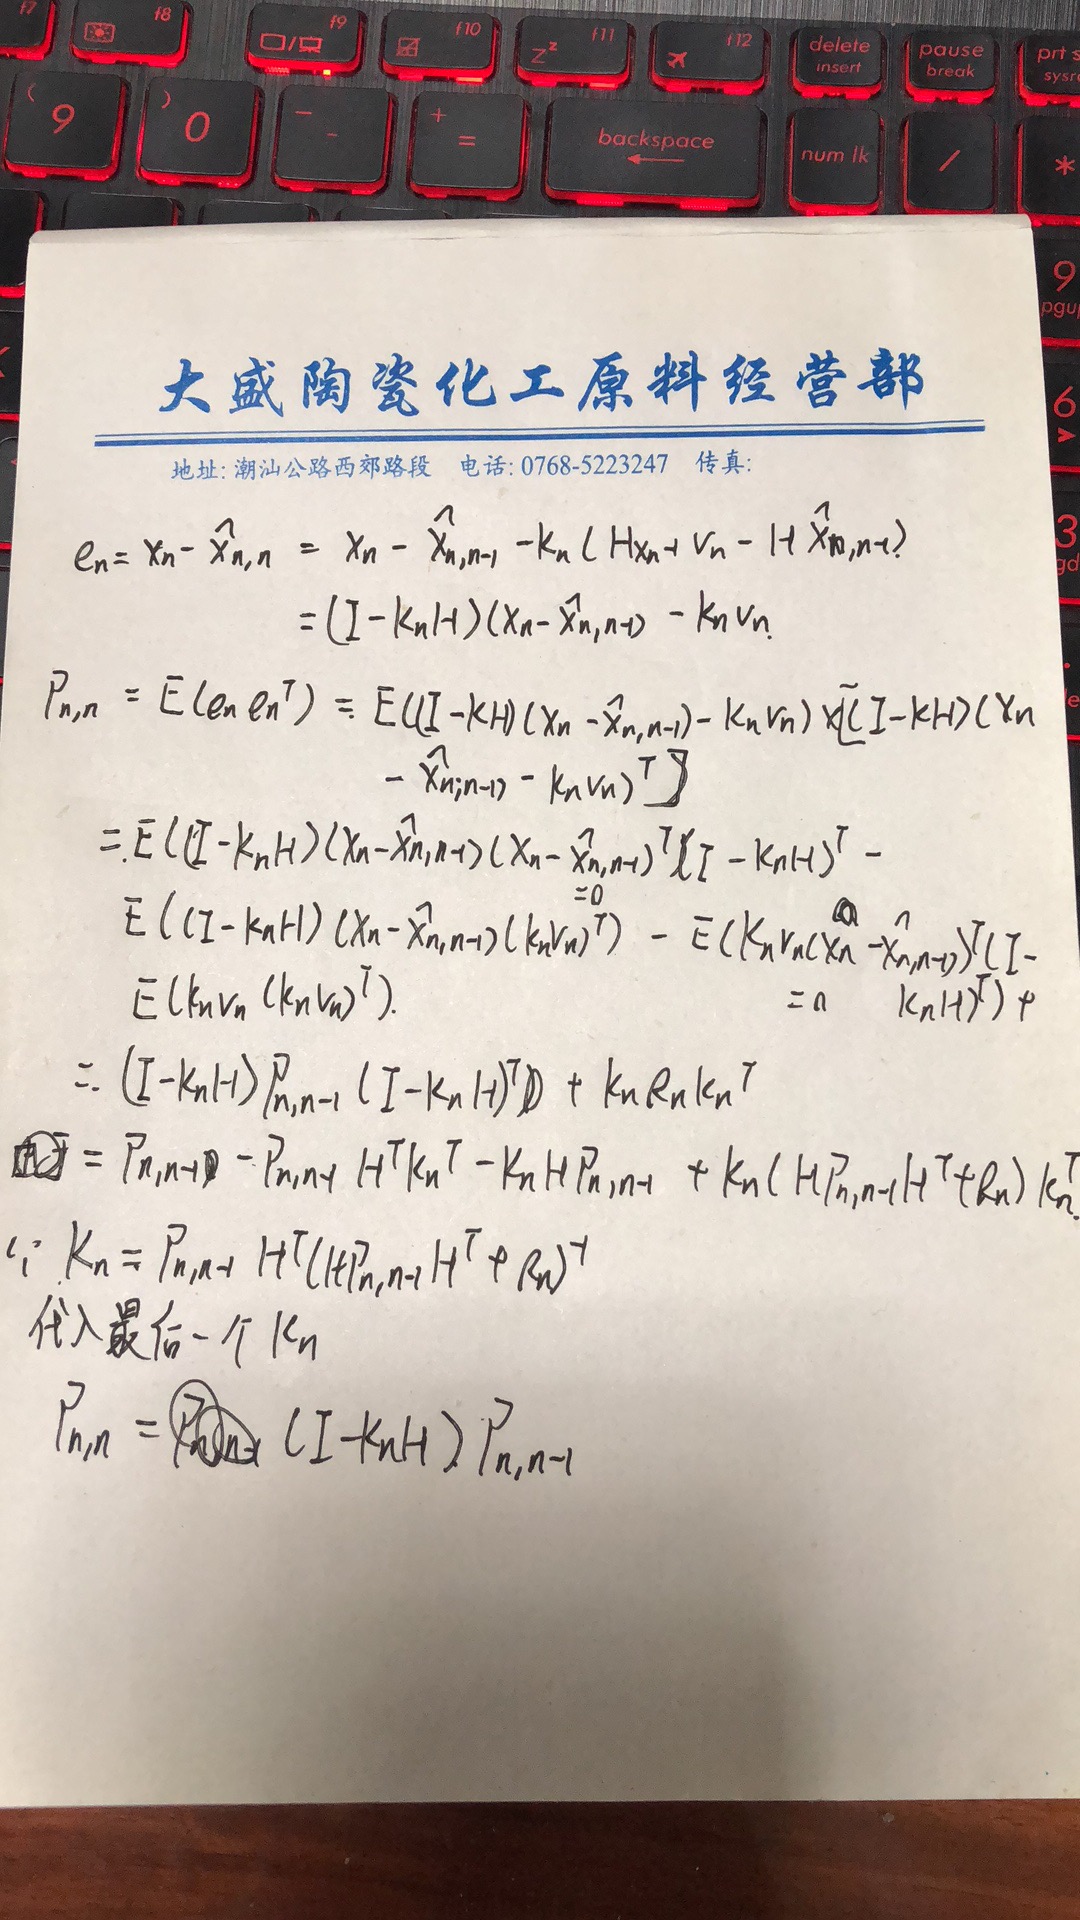 f7 f8 f9 f10 f11 f12 delete insert pause break prt s sysr
( 9 ) 0 - - + = backspace num lk / *
9 pgup
6
3
大盛陶瓷化工原料经营部
地址: 潮汕公路西郊路段 电话: 0768-5223247 传真:
en = xn - x̂n,n = xn - x̂n,n-1 - Kn(Hxn+vn - Hx̂n,n-1)
= (I-KnH)(xn-x̂n,n-1) - Knvn.
Pn,n = E(en enᵀ) = E((I-KH)(xn-x̂n,n-1) - Knvn) x[(I-KH)(xn
- x̂n,n-1) - Knvn)ᵀ]
= E((I-KnH)(xn-x̂n,n-1)(xn-x̂n,n-1)ᵀ(I-KnH)ᵀ -
=0
E((I-KnH)(xn-x̂n,n-1)(Knvn)ᵀ) - E(Knvn(xn-x̂n,n-1)ᵀ(I-
E(Knvn(Knvn)ᵀ). =0 KnH)ᵀ) +
= (I-KnH)Pn,n-1(I-KnH)ᵀ + KnRnKnᵀ
= Pn,n-1 - Pn,n-1HᵀKnᵀ - KnHPn,n-1 + Kn(HPn,n-1Hᵀ+Rn)Knᵀ.
∵ Kn = Pn,n-1Hᵀ(HPn,n-1Hᵀ+Rn)⁻¹
代入最后一个Kn
Pn,n = (I-KnH)Pn,n-1